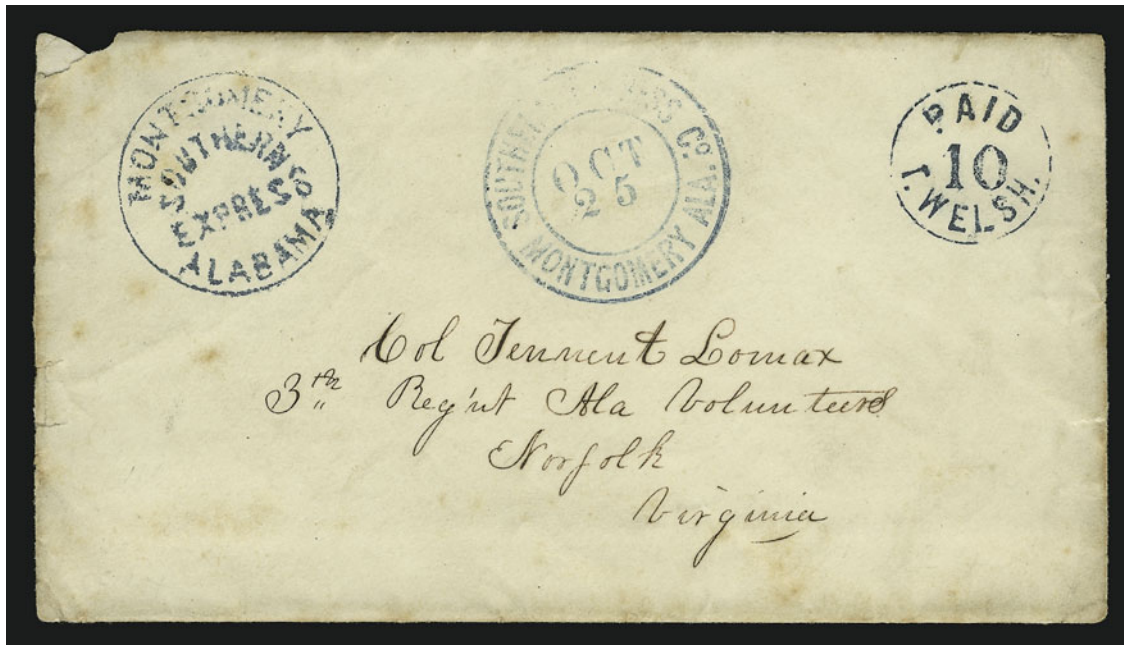 MONTGOMERY
SOUTHERN
EXPRESS Co
ALABAMA
SOUTHERN EXPRESS Co.
OCT
25
MONTGOMERY ALA.
PAID
10
T. WELSH.
Col Tennent Lomax
3th Reg'nt Ala Volunteers
Norfolk
Virginia